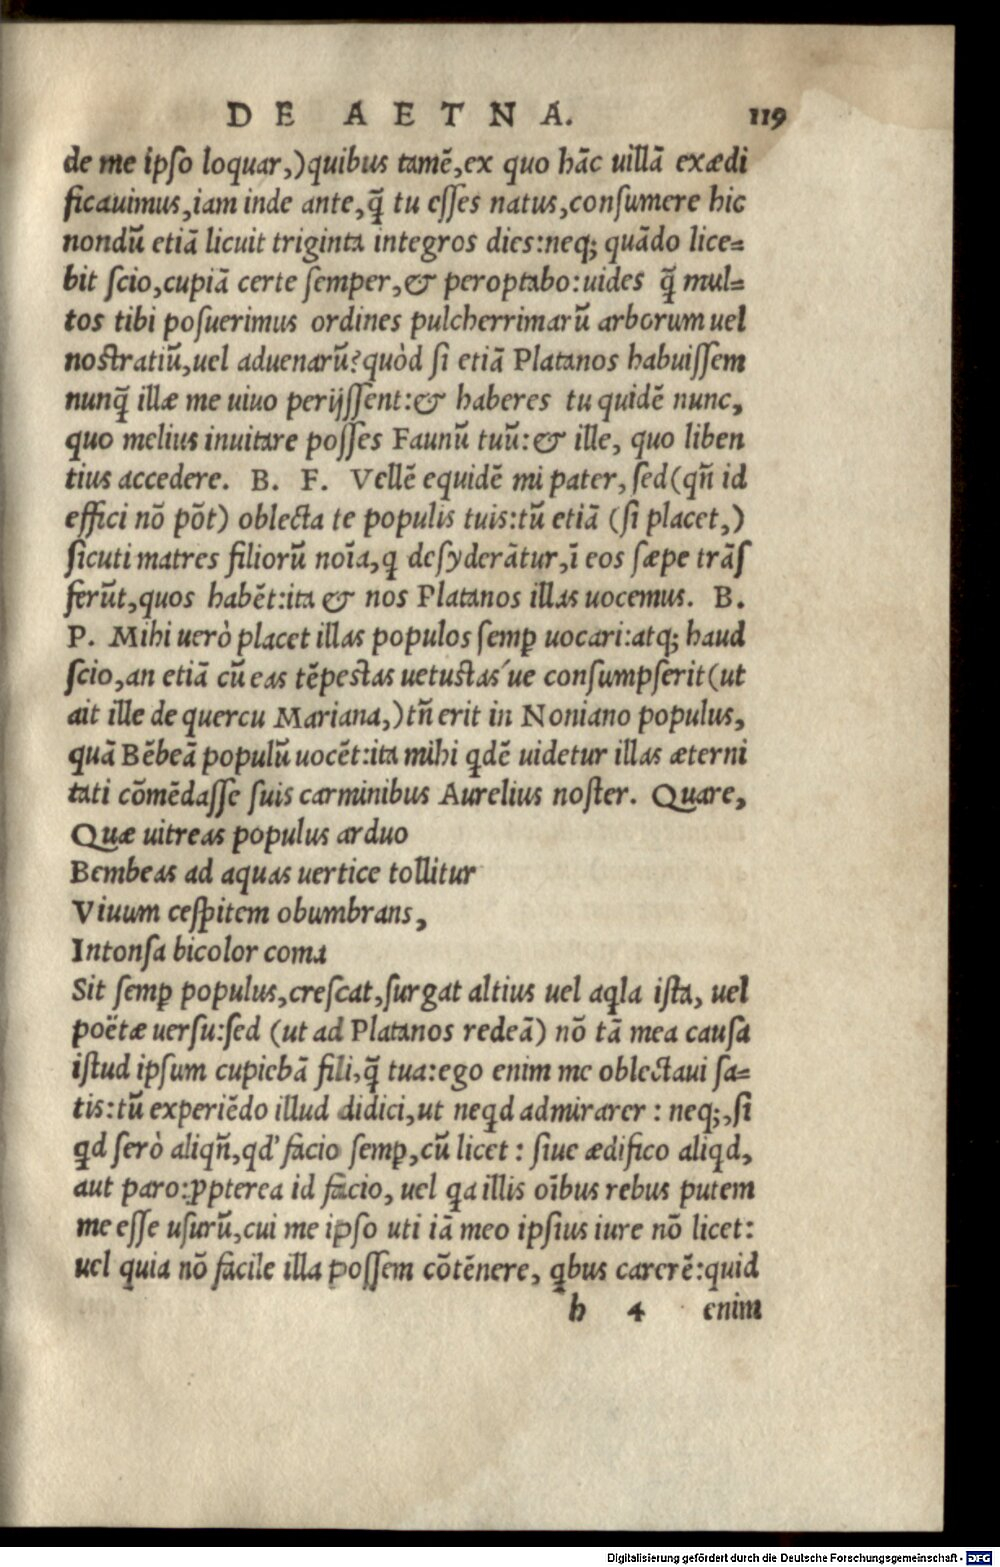 DE AETNA. 119
de me ipſo loquar,)quibus tamē,ex quo hāc uillā exædi
ficauimus,iam inde ante,q̄ tu eſſes natus,conſumere hic
nondū etiā licuit triginta integros dies:neq; quādo lice=
bit ſcio,cupiā certe ſemper,& peroptabo:uides q̄ mul=
tos tibi poſuerimus ordines pulcherrimarū arborum uel
noſtratiū,uel aduenarū?quòd ſi etiā Platanos habuiſſem
nunq̄ illæ me uiuo perijſſent:& haberes tu quidē nunc,
quo melius inuitare poſſes Faunū tuū:& ille, quo liben
tius accedere. B. F. Vellē equidē mi pater, ſed(qn̄ id
effici nō pōt) oblecta te populis tuis:tū etiā (ſi placet,)
ſicuti matres filiorū noīa,q deſyderātur,ī eos ſæpe trāſ
ferūt,quos habēt:ita & nos Platanos illas uocemus. B.
P. Mihi uerò placet illas populos ſemp̱ uocari:atq; haud
ſcio,an etiā cū eas tēpeſtas uetuſtas´ue conſumpſerit(ut
ait ille de quercu Mariana,)tn̄ erit in Noniano populus,
quā Bēbeā populū uocēt:ita mihi qdē uidetur illas æterni
tati cōmēdaſſe ſuis carminibus Aurelius noſter. Quare,
Quæ uitreas populus arduo
Bembeas ad aquas uertice tollitur
Viuum ceſpitem obumbrans,
Intonſa bicolor coma
Sit ſemp̱ populus,creſcat,ſurgat altius uel aqla iſta, uel
poëtæ uerſu:ſed (ut ad Platanos redeā) nō tā mea cauſa
iſtud ipſum cupiebā fili,q̄ tua:ego enim me oblectaui ſa=
tis:tū experiēdo illud didici,ut neqd admirarer : neq;,ſi
qd ſerò aliqn̄,qd' facio ſemp̱,cū licet : ſiue ædifico aliqd,
aut paro:ꝓpterea id facio, uel qa illis oībus rebus putem
me eſſe uſurū,cui me ipſo uti iā meo ipſius iure nō licet:
uel quia nō facile illa poſſem cōtēnere, qbus carerē:quid
h 4 enim
Digitalisierung gefördert durch die Deutsche Forschungsgemeinschaft - DFG